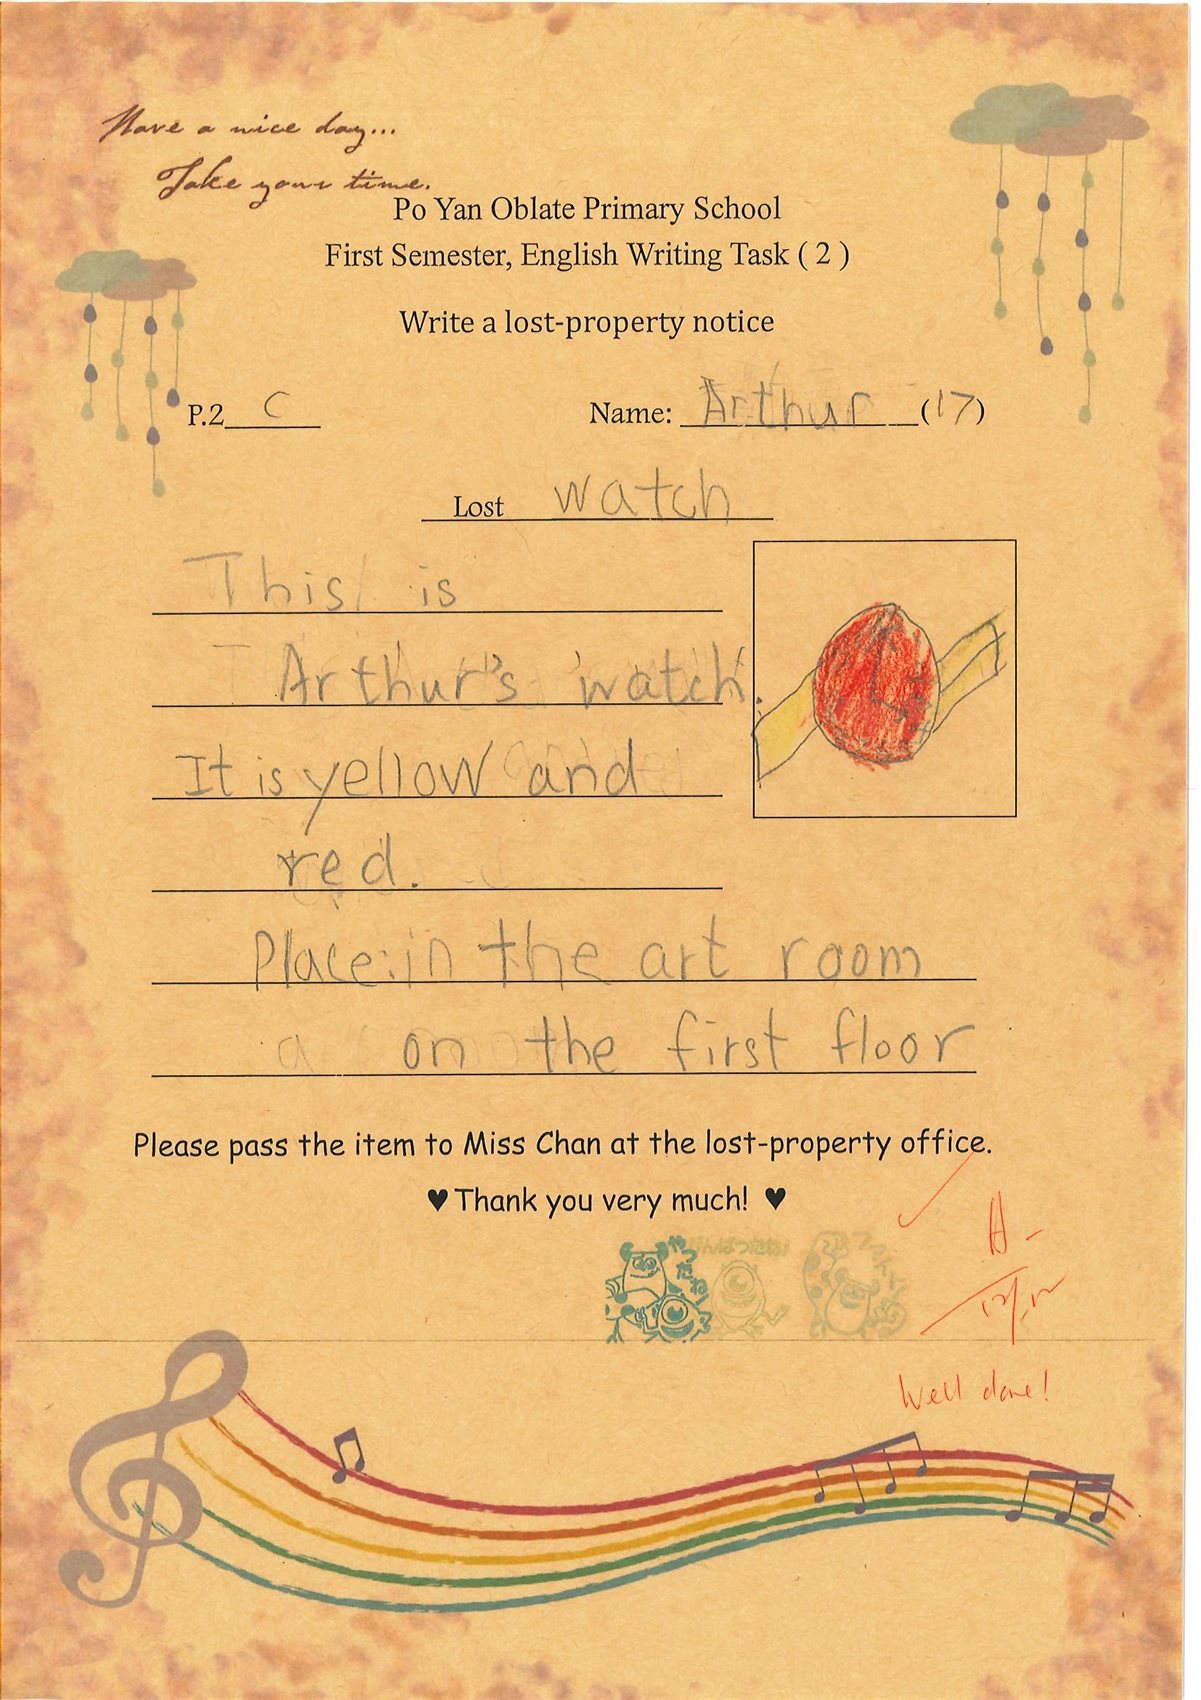 Have a nice day...
Take your time.
Po Yan Oblate Primary School
First Semester, English Writing Task ( 2 )
Write a lost-property notice
P.2 C Name: Arthur (17)
Lost watch
This is
Arthur's watch.
It is yellow and
red.
Place: in the art room
on the first floor
Please pass the item to Miss Chan at the lost-property office.
♥ Thank you very much! ♥
やったね!
A-
12/12
Well done!